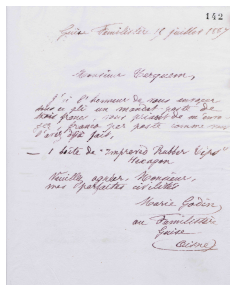 142
Guise Familistère, 12 juillet 1887
Monsieur Ferguson,
J'ai l'honneur de vous envoyer
sous ce pli un mandat poste de
trois francs, vous priant de m'envo
franco par poste comme vous
l'avez déjà fait,
— 1 boîte de "Improved Rubber Tips"
Hexagon
Veuillez agréer, Monsieur,
mes parfaites civilités
Marie Godin
au Familistère
Guise
(Aisne)